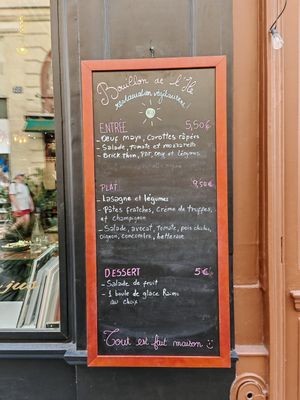 Bouillon de L'Île
restauration végétarienne!
ENTRÉE 5,50€
- Oeuf mayo, Carottes râpées
- Salade, Tomate et mozzarella
- Brick thon, et légumes
PLAT 9,50€
- Lasagne et légumes
- Pâtes fraîches, Crème de truffes,
et champignon
- Salade, avocat, Tomate, pois chiches,
oignon, concombre, betterave
DESSERT 5€
- Salade de fruit
- 1 boule de glace
au choix
Tout est fait maison